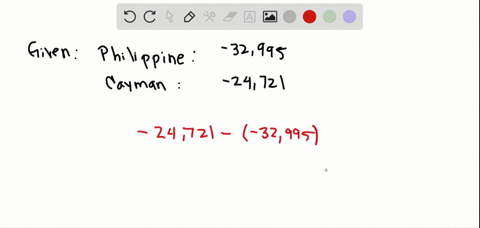 Given: Philippine: -32,995
Cayman: -24,721
-24,721-(-32,995)